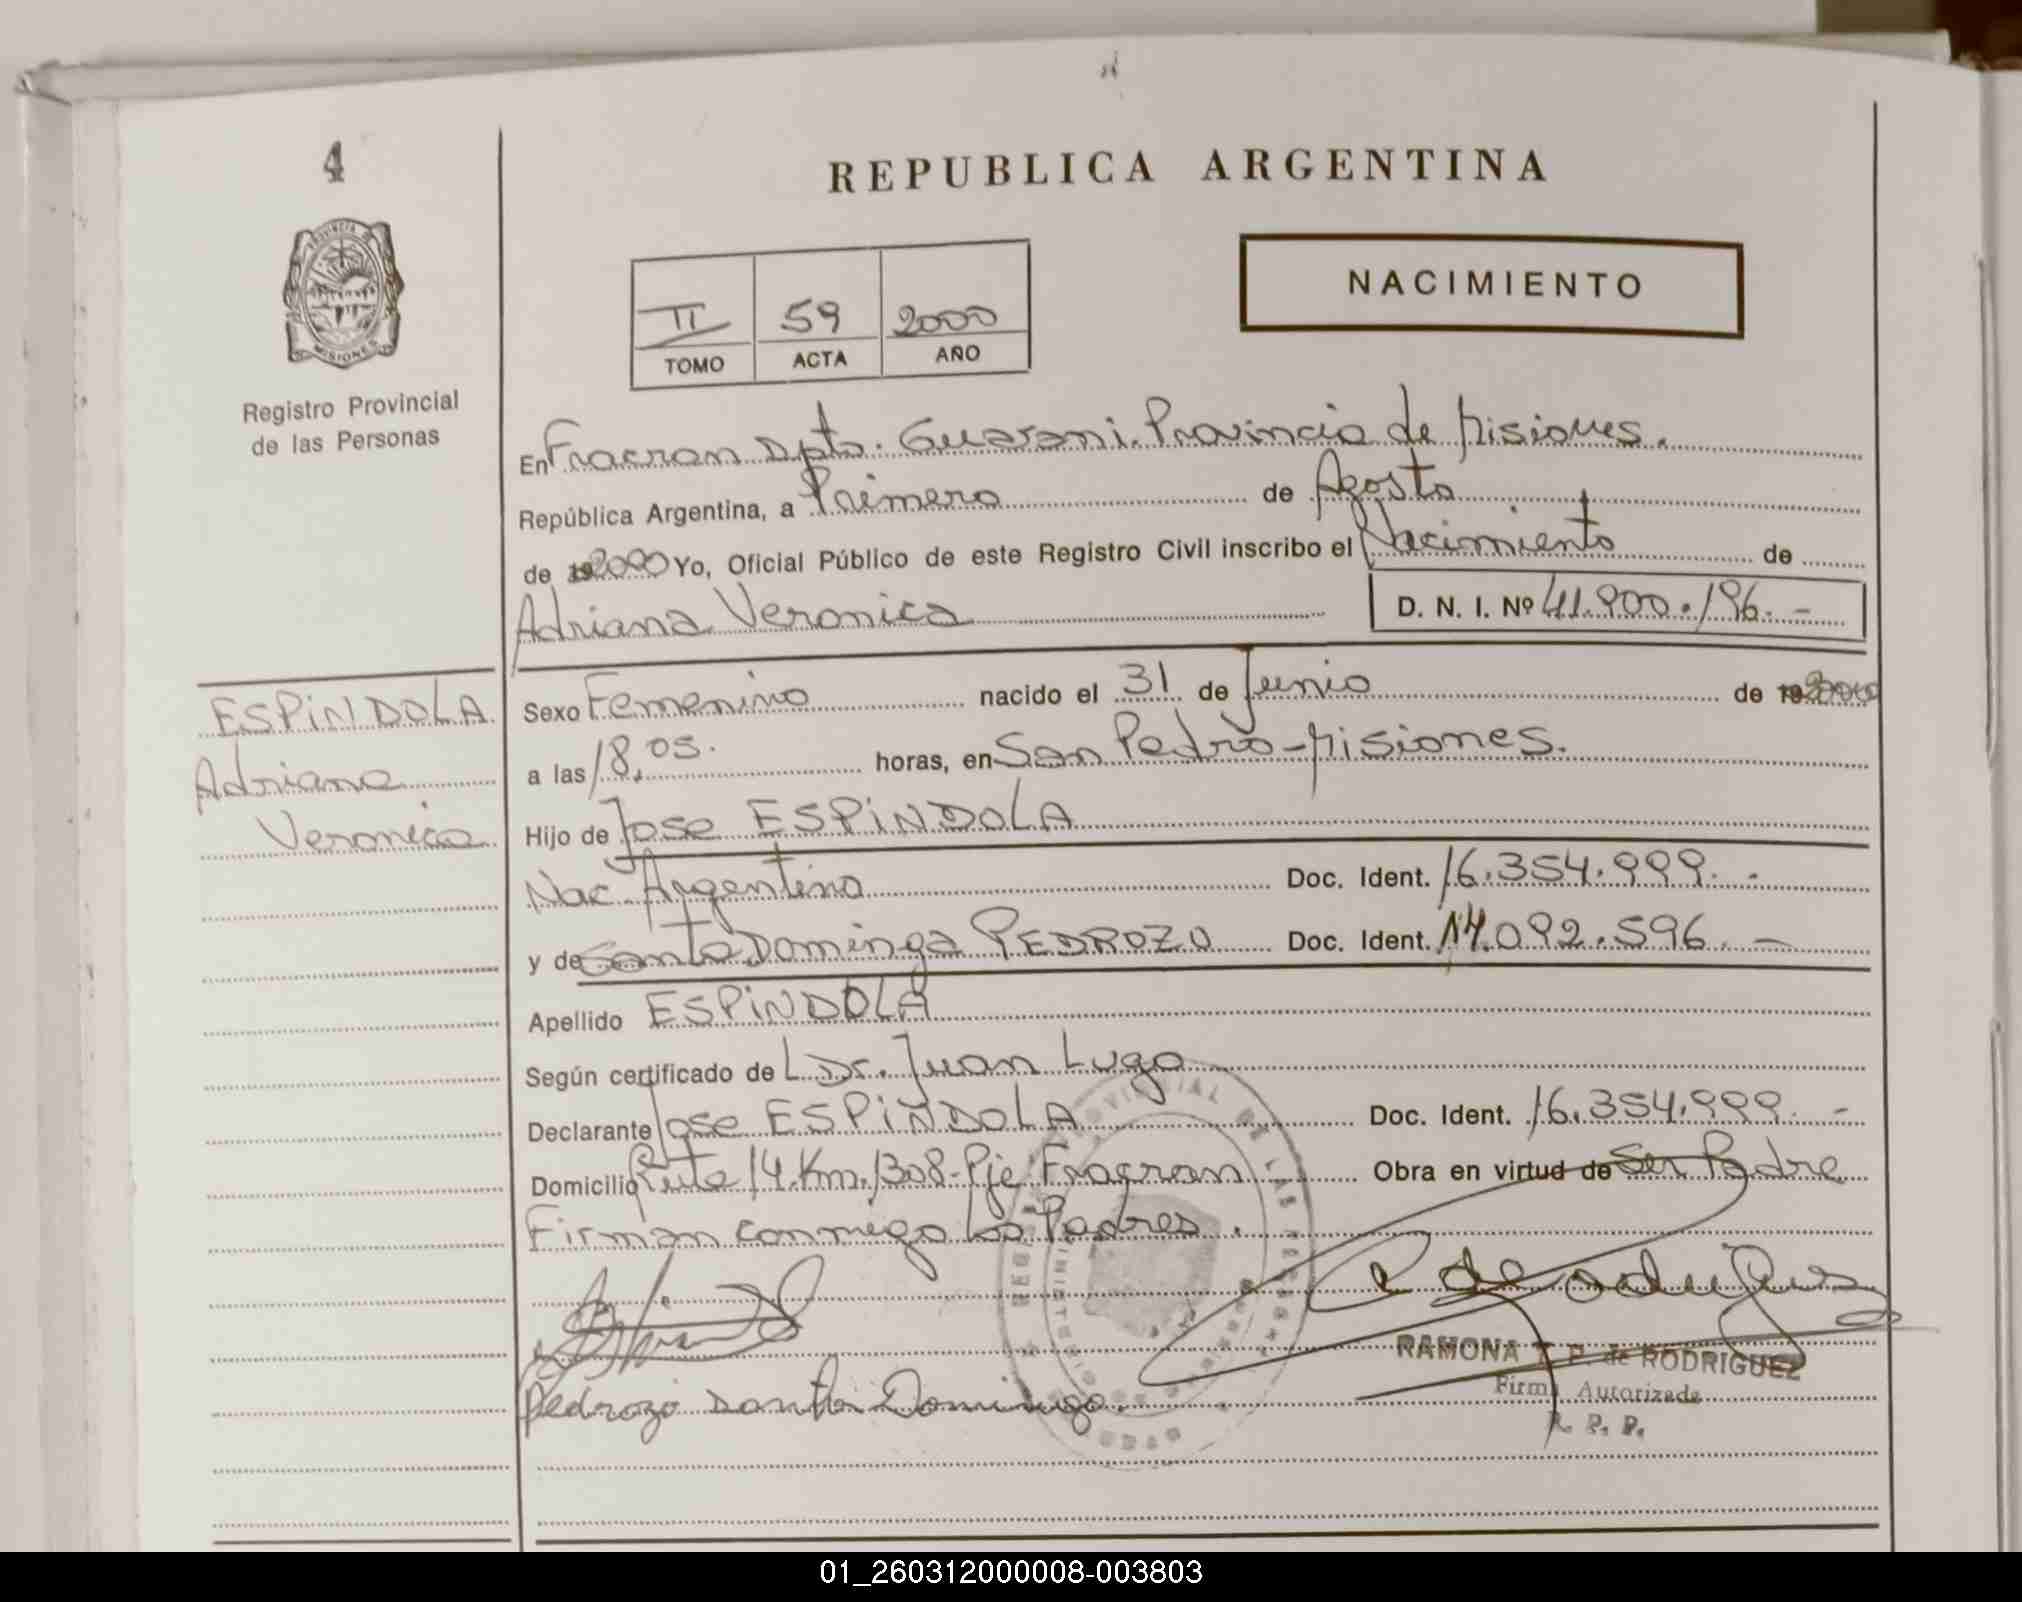 4
REPUBLICA ARGENTINA
PROVINCIA DE
MISIONES
NACIMIENTO
II 59 2000
TOMO ACTA AÑO
Registro Provincial
de las Personas
En Fracran Dpto. Guarani. Provincia de Misiones.
República Argentina, a Primero de Agosto
de 19 2000 Yo, Oficial Público de este Registro Civil inscribo el Nacimiento de
Adriana Veronica D. N. I. Nº 41.900.196.-
ESPINDOLA
Adriana
Veronica
Sexo Femenino nacido el 31 de Junio de 19 2000
a las 18,05. horas, en San Pedro-Misiones.
Hijo de Jose ESPINDOLA
Nac. Argentino Doc. Ident. 16.354.999.-
y de Santa Dominga PEDROZO Doc. Ident. 14.092.596.-
Apellido ESPINDOLA
Según certificado de L Dr. Juan Lugo
Declarante Jose ESPINDOLA Doc. Ident. 16.354.999.-
Domicilio Ruta 14.Km.1308-Pje Fracran Obra en virtud de Ser Padre
Firman conmigo los Padres.
Pedrozo Santa Dominga.
RAMONA T. P. de RODRIGUEZ
Firma Autorizada
R. P. P.
01_260312000008-003803